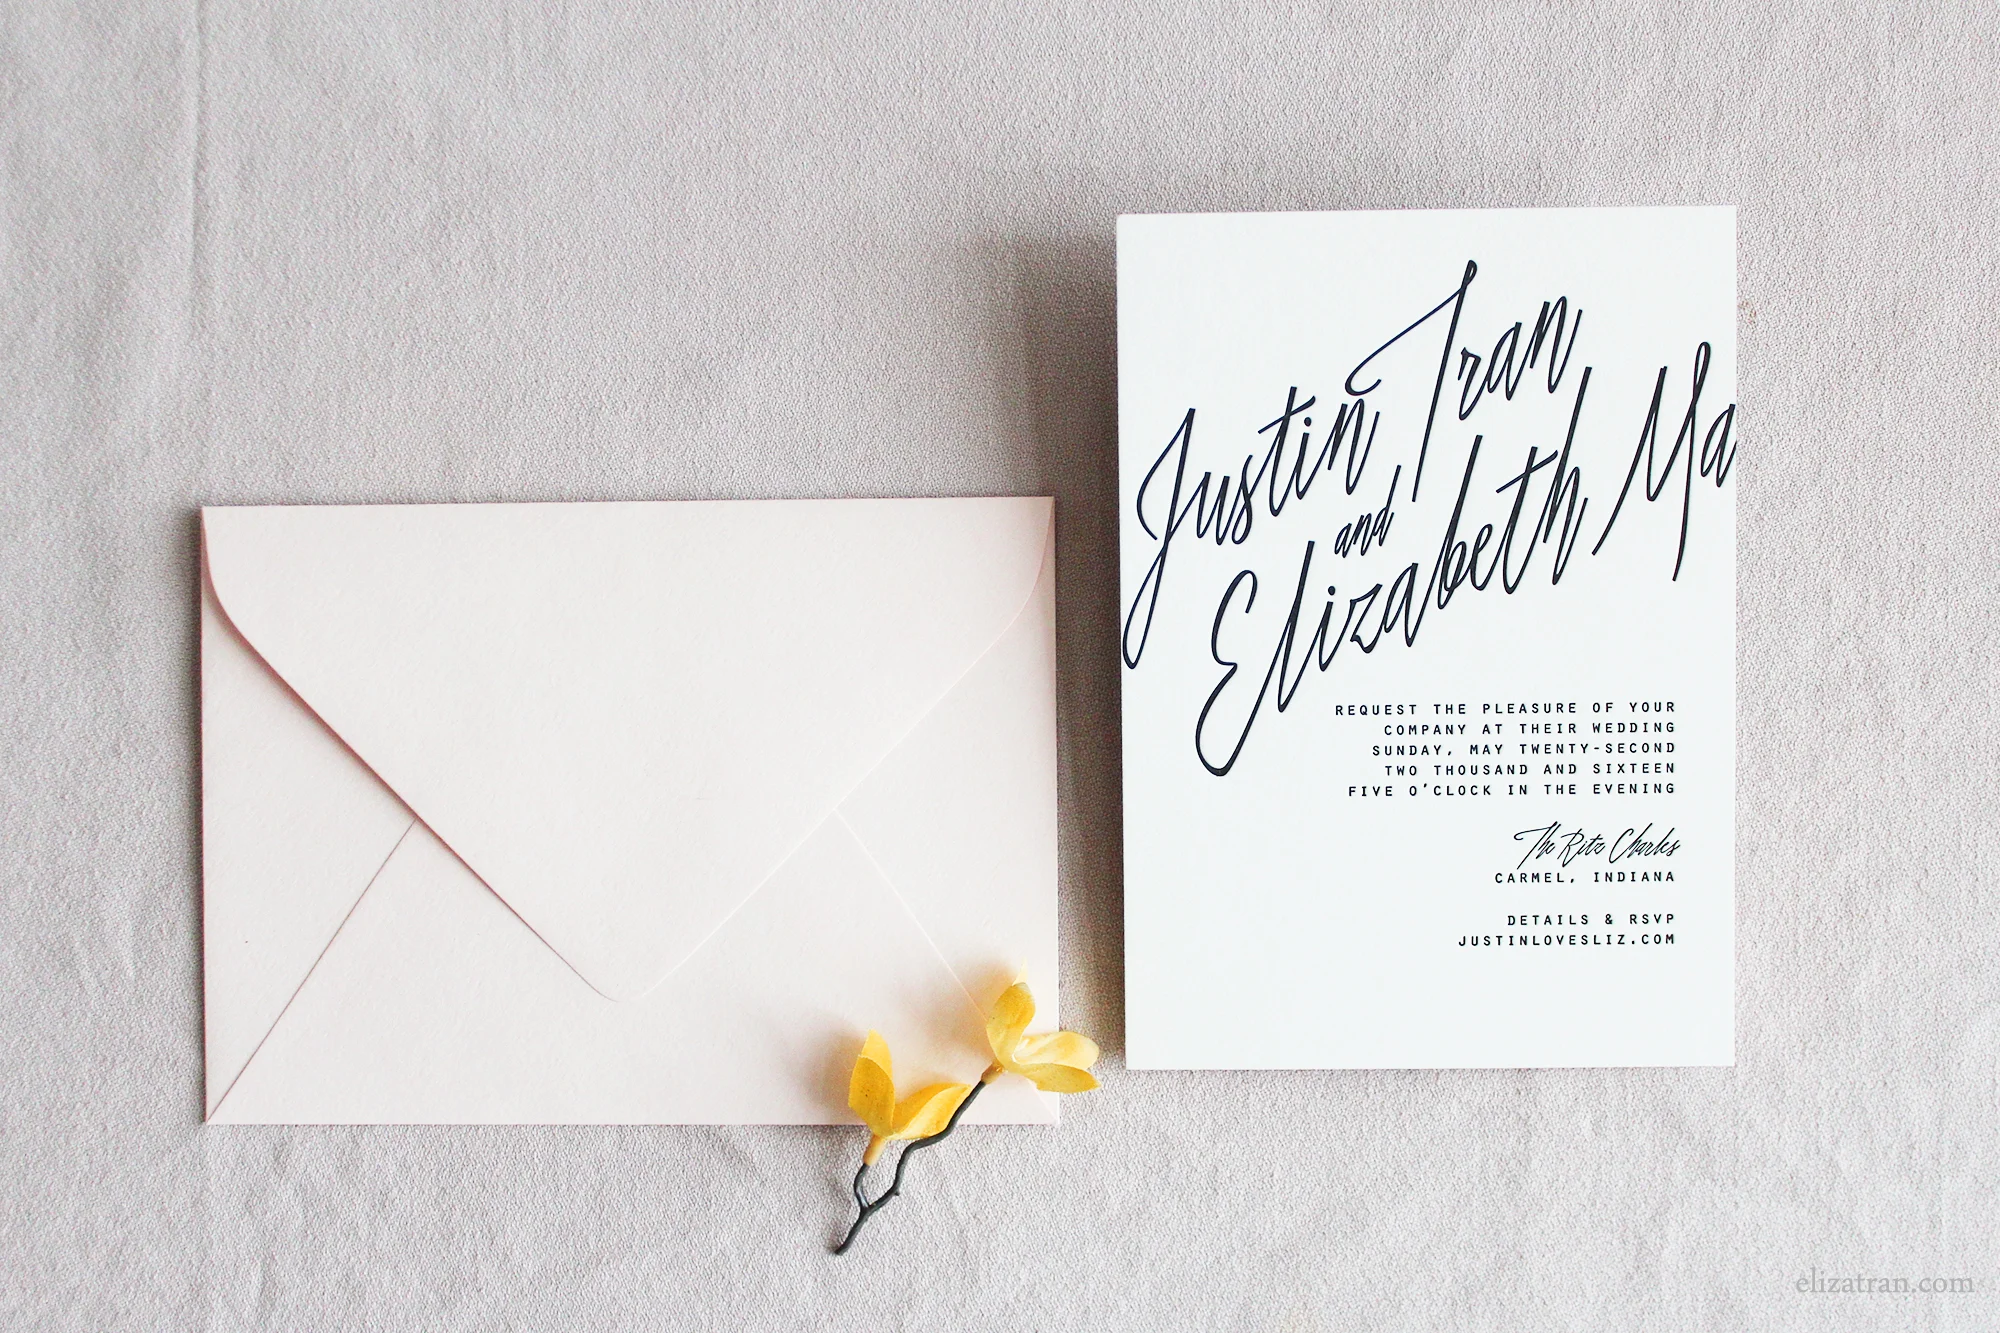 Justin Tran
and
Elizabeth Ma
REQUEST THE PLEASURE OF YOUR
COMPANY AT THEIR WEDDING
SUNDAY, MAY TWENTY-SECOND
TWO THOUSAND AND SIXTEEN
FIVE O'CLOCK IN THE EVENING
The Ritz Charles
CARMEL, INDIANA
DETAILS & RSVP
JUSTINLOVESLIZ.COM
elizatran.com